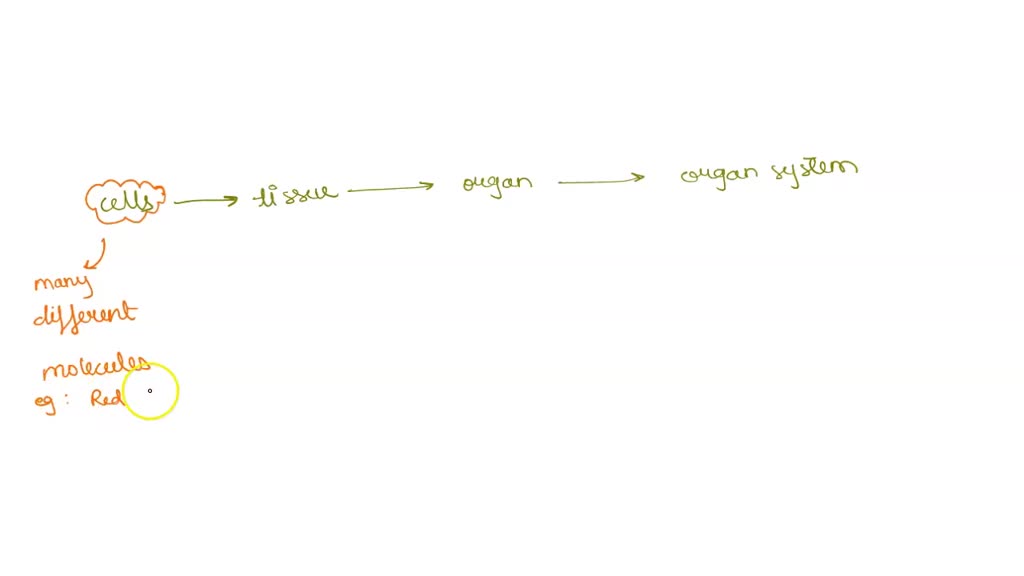 cells → tissue → organ → organ system
many
different
molecules
eg : Red